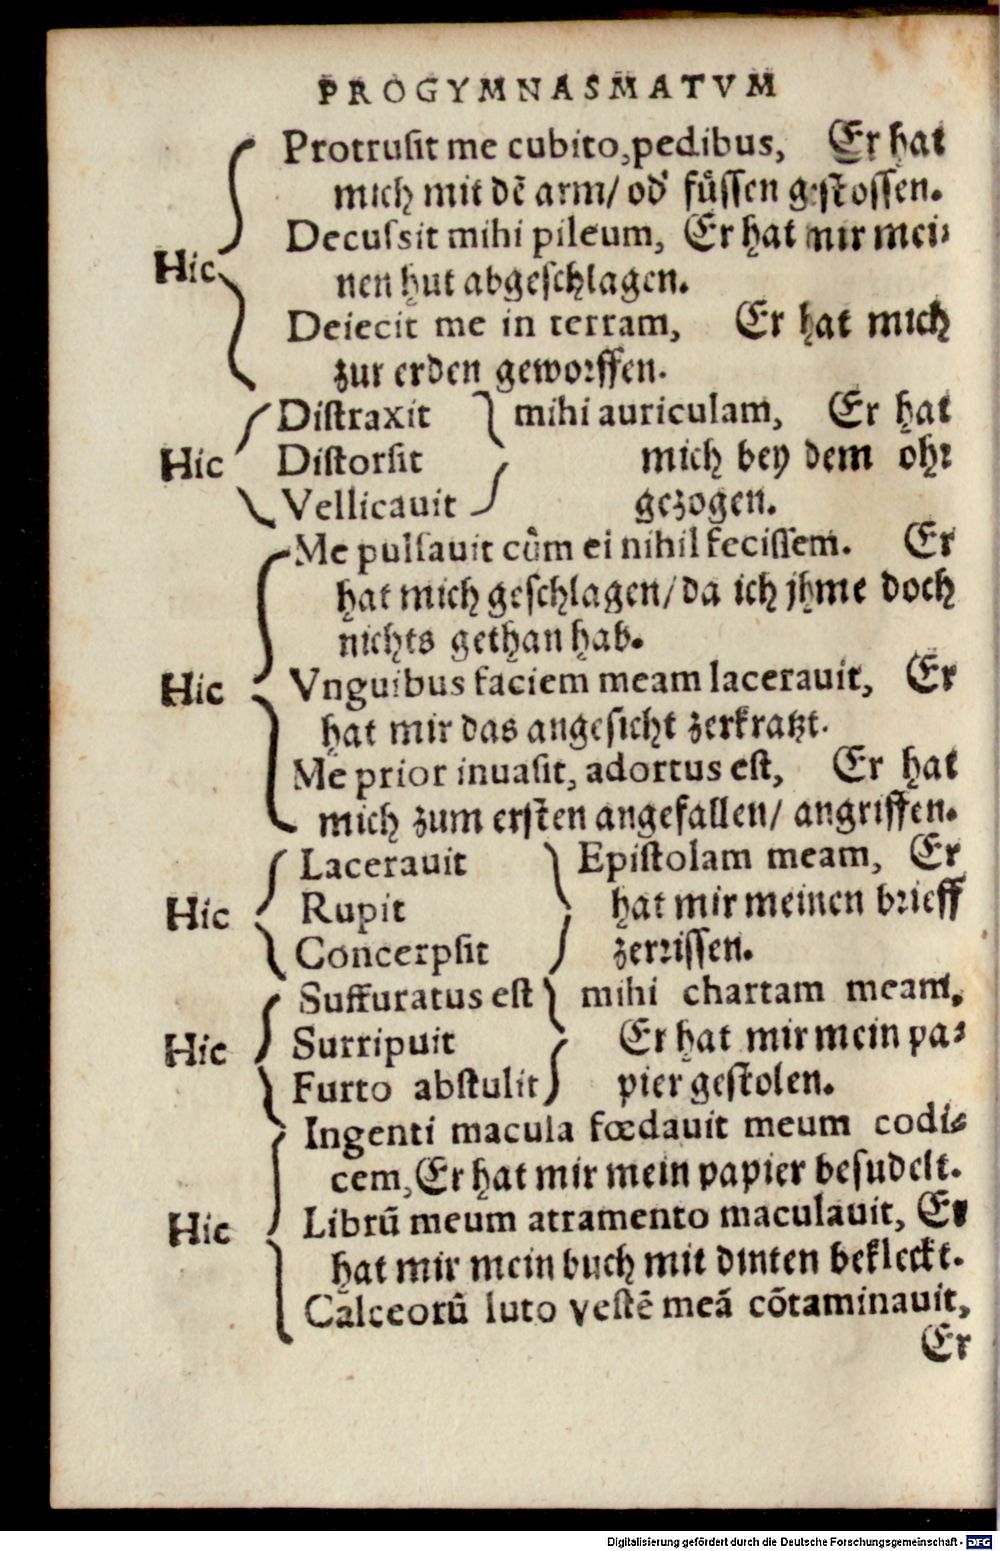 PROGYMNASMATVM
Protrusit me cubito, pedibus, Er hat
mich mit dē arm/ od' füssen gestossen.
Decussit mihi pileum, Er hat mir mei-
Hic
nen hut abgeschlagen.
Deiecit me in terram, Er hat mich
zur erden geworffen.
Distraxit mihi auriculam, Er hat
Hic Distorsit mich bey dem ohr
Vellicauit gezogen.
Me pulsauit cùm ei nihil fecissem. Er
hat mich geschlagen/ da ich jhme doch
nichts gethan hab.
Hic Vnguibus faciem meam lacerauit, Er
hat mir das angesicht zerkratzt.
Me prior inuasit, adortus est, Er hat
mich zum ersten angefallen/ angriffen.
Lacerauit Epistolam meam, Er
Hic Rupit hat mir meinen brieff
Concerpsit zerrissen.
Suffuratus est mihi chartam meam,
Hic Surripuit Er hat mir mein pa-
Furto abstulit pier gestolen.
Ingenti macula fœdauit meum codi-
cem, Er hat mir mein papier besudelt.
Hic Librū meum atramento maculauit, Er
hat mir mein buch mit dinten bekleckt.
Calceorū luto vestē meā cōtaminauit,
Er
Digitalisierung gefördert durch die Deutsche Forschungsgemeinschaft - DFG